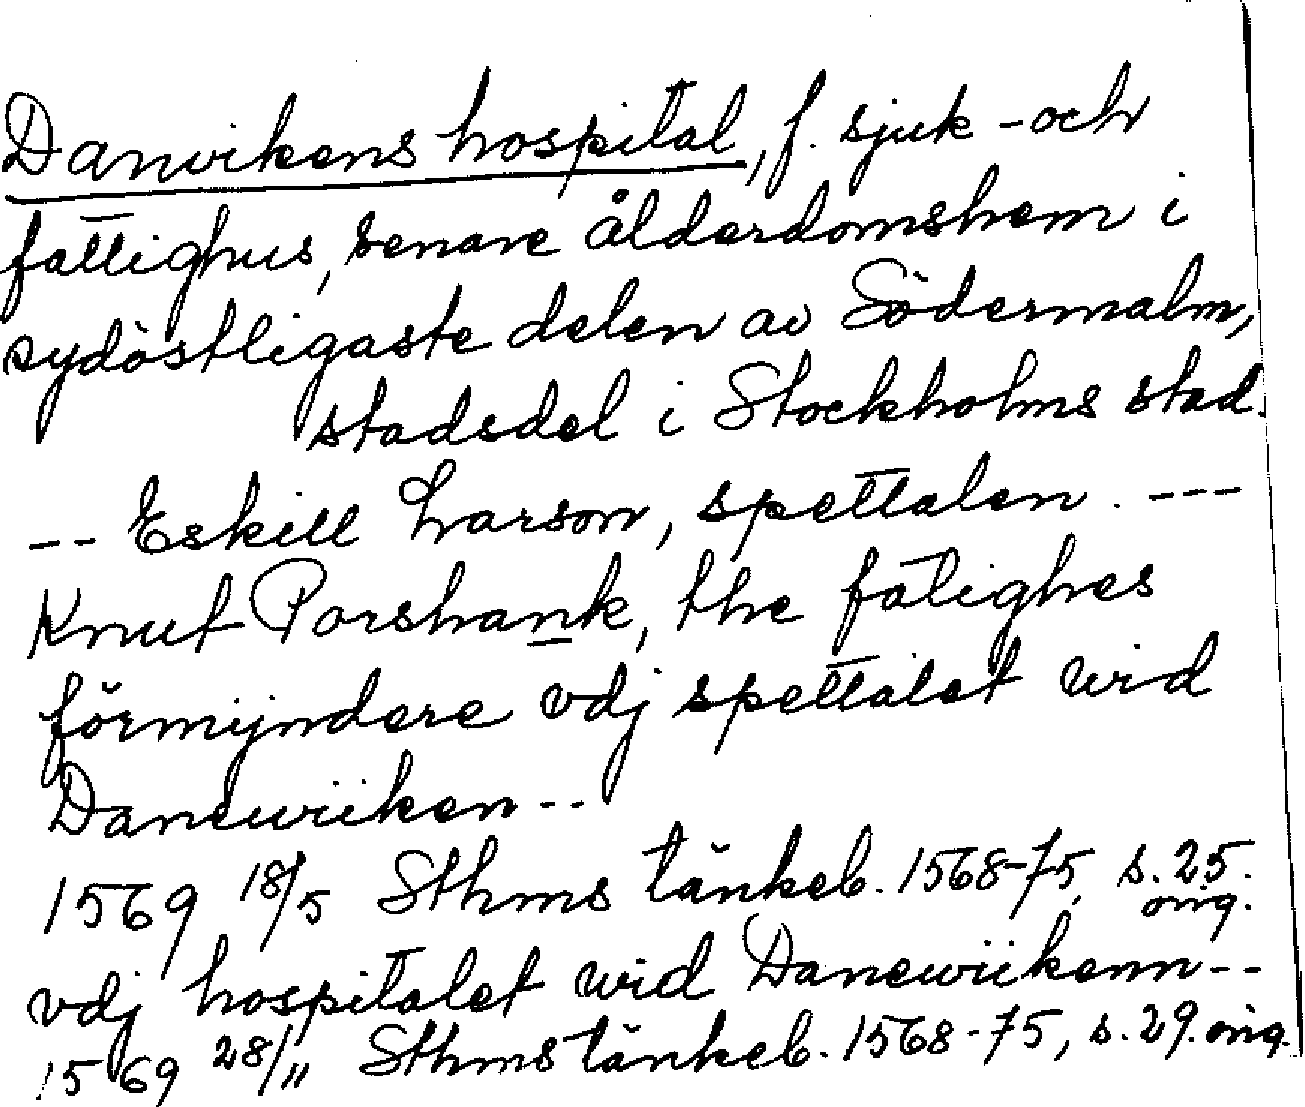 Danvikens hospital, f. sjuk- och
fattighus, senare ålderdomshem i
sydöstligaste delen av Södermalm,
stadsdel i Stockholms stad.
-- Eskill Larson, spettalen. ---
Knut Porshank, the fatighes
förmyndere vdj spettalet wid
Danewiiken --
1569 18/5 Sthms tänkeb. 1568-75, s. 25.
orig.
vdj hospitalet wid Danewiikenn --
1569 28/11 Sthms tänkeb. 1568-75, s. 29. orig.